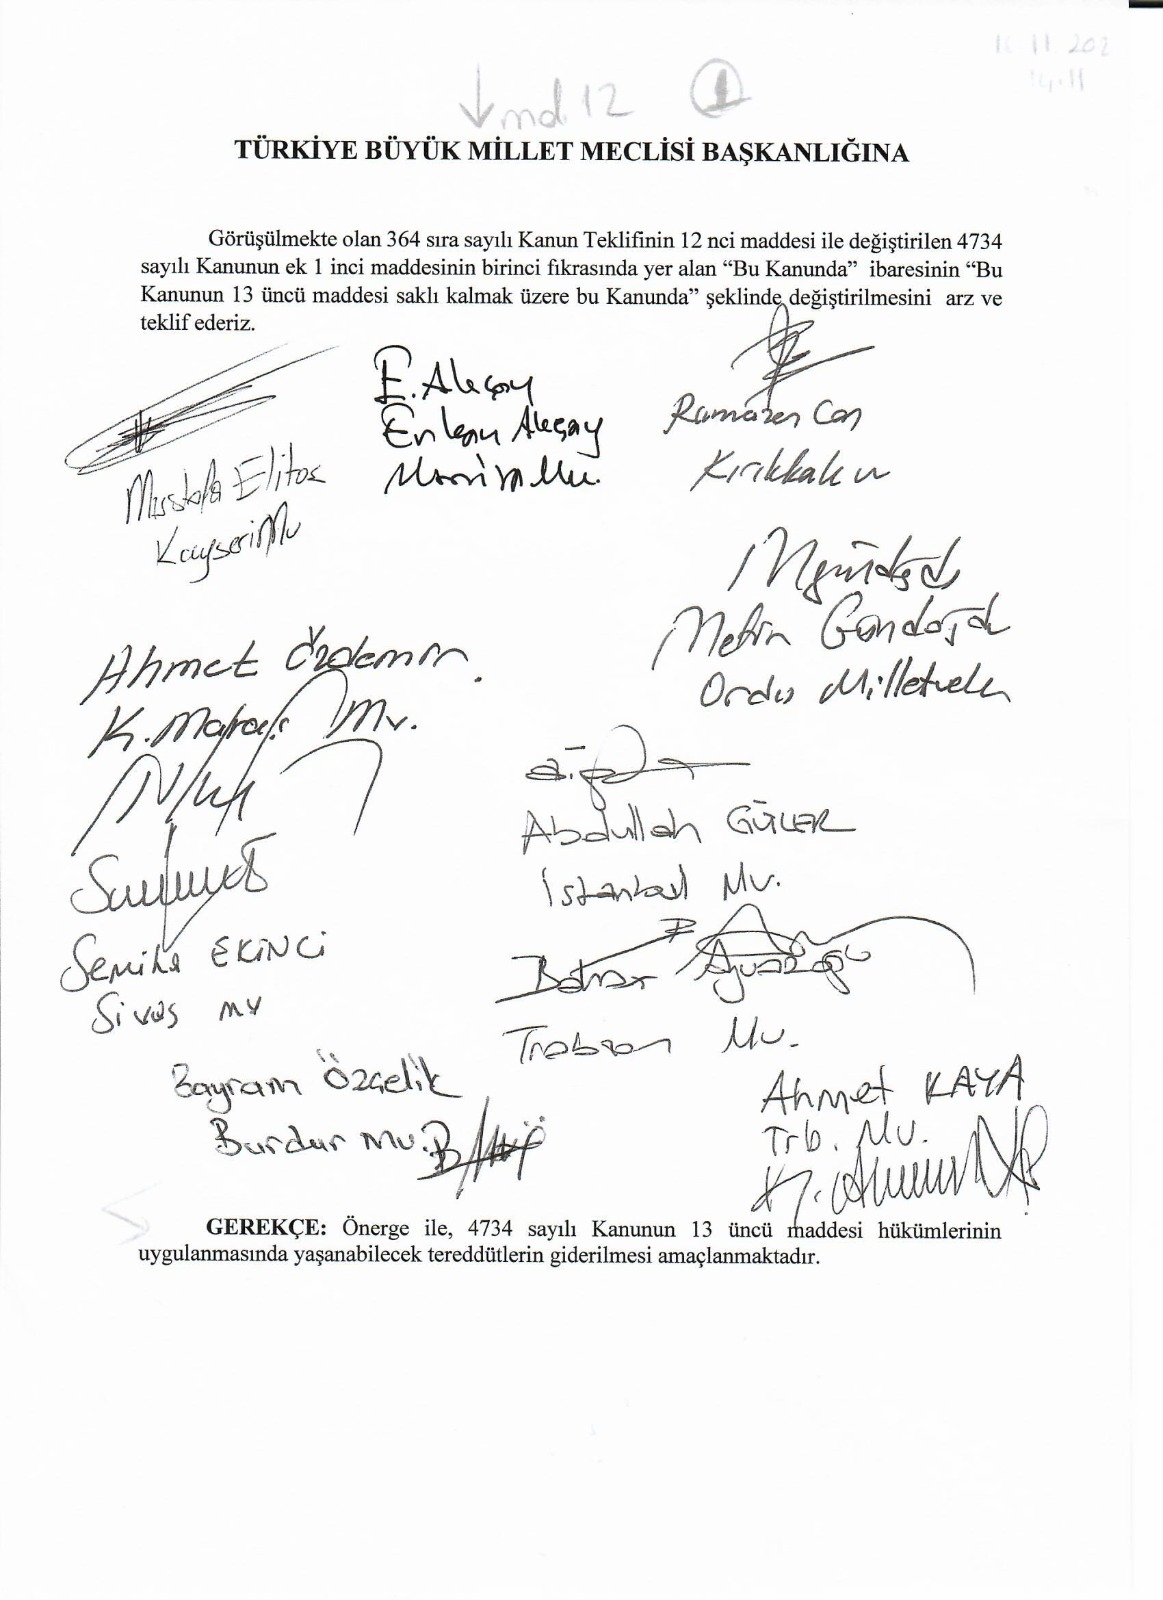 md. 12 1
TÜRKİYE BÜYÜK MİLLET MECLİSİ BAŞKANLIĞINA
Görüşülmekte olan 364 sıra sayılı Kanun Teklifinin 12 nci maddesi ile değiştirilen 4734
sayılı Kanunun ek 1 inci maddesinin birinci fıkrasında yer alan “Bu Kanunda” ibaresinin “Bu
Kanunun 13 üncü maddesi saklı kalmak üzere bu Kanunda” şeklinde değiştirilmesini arz ve
teklif ederiz.
Mustafa Elitaş
Kayseri Mv
E. Akçay
Erkan Akçay
Manisa Mv.
Ramazan Can
Kırıkkale
Metin Gündoğdu
Ordu Milletvekili
Ahmet Özdemir
K. Maraş Mv.
Abdullah GÜLER
İstanbul Mv.
Semiha EKİNCİ
Sivas mv
Bahar Ayvazoğlu
Trabzon Mv.
Bayram Özçelik
Burdur mv.
Ahmet KAYA
Trb. Mv.
GEREKÇE: Önerge ile, 4734 sayılı Kanunun 13 üncü maddesi hükümlerinin
uygulanmasında yaşanabilecek tereddütlerin giderilmesi amaçlanmaktadır.